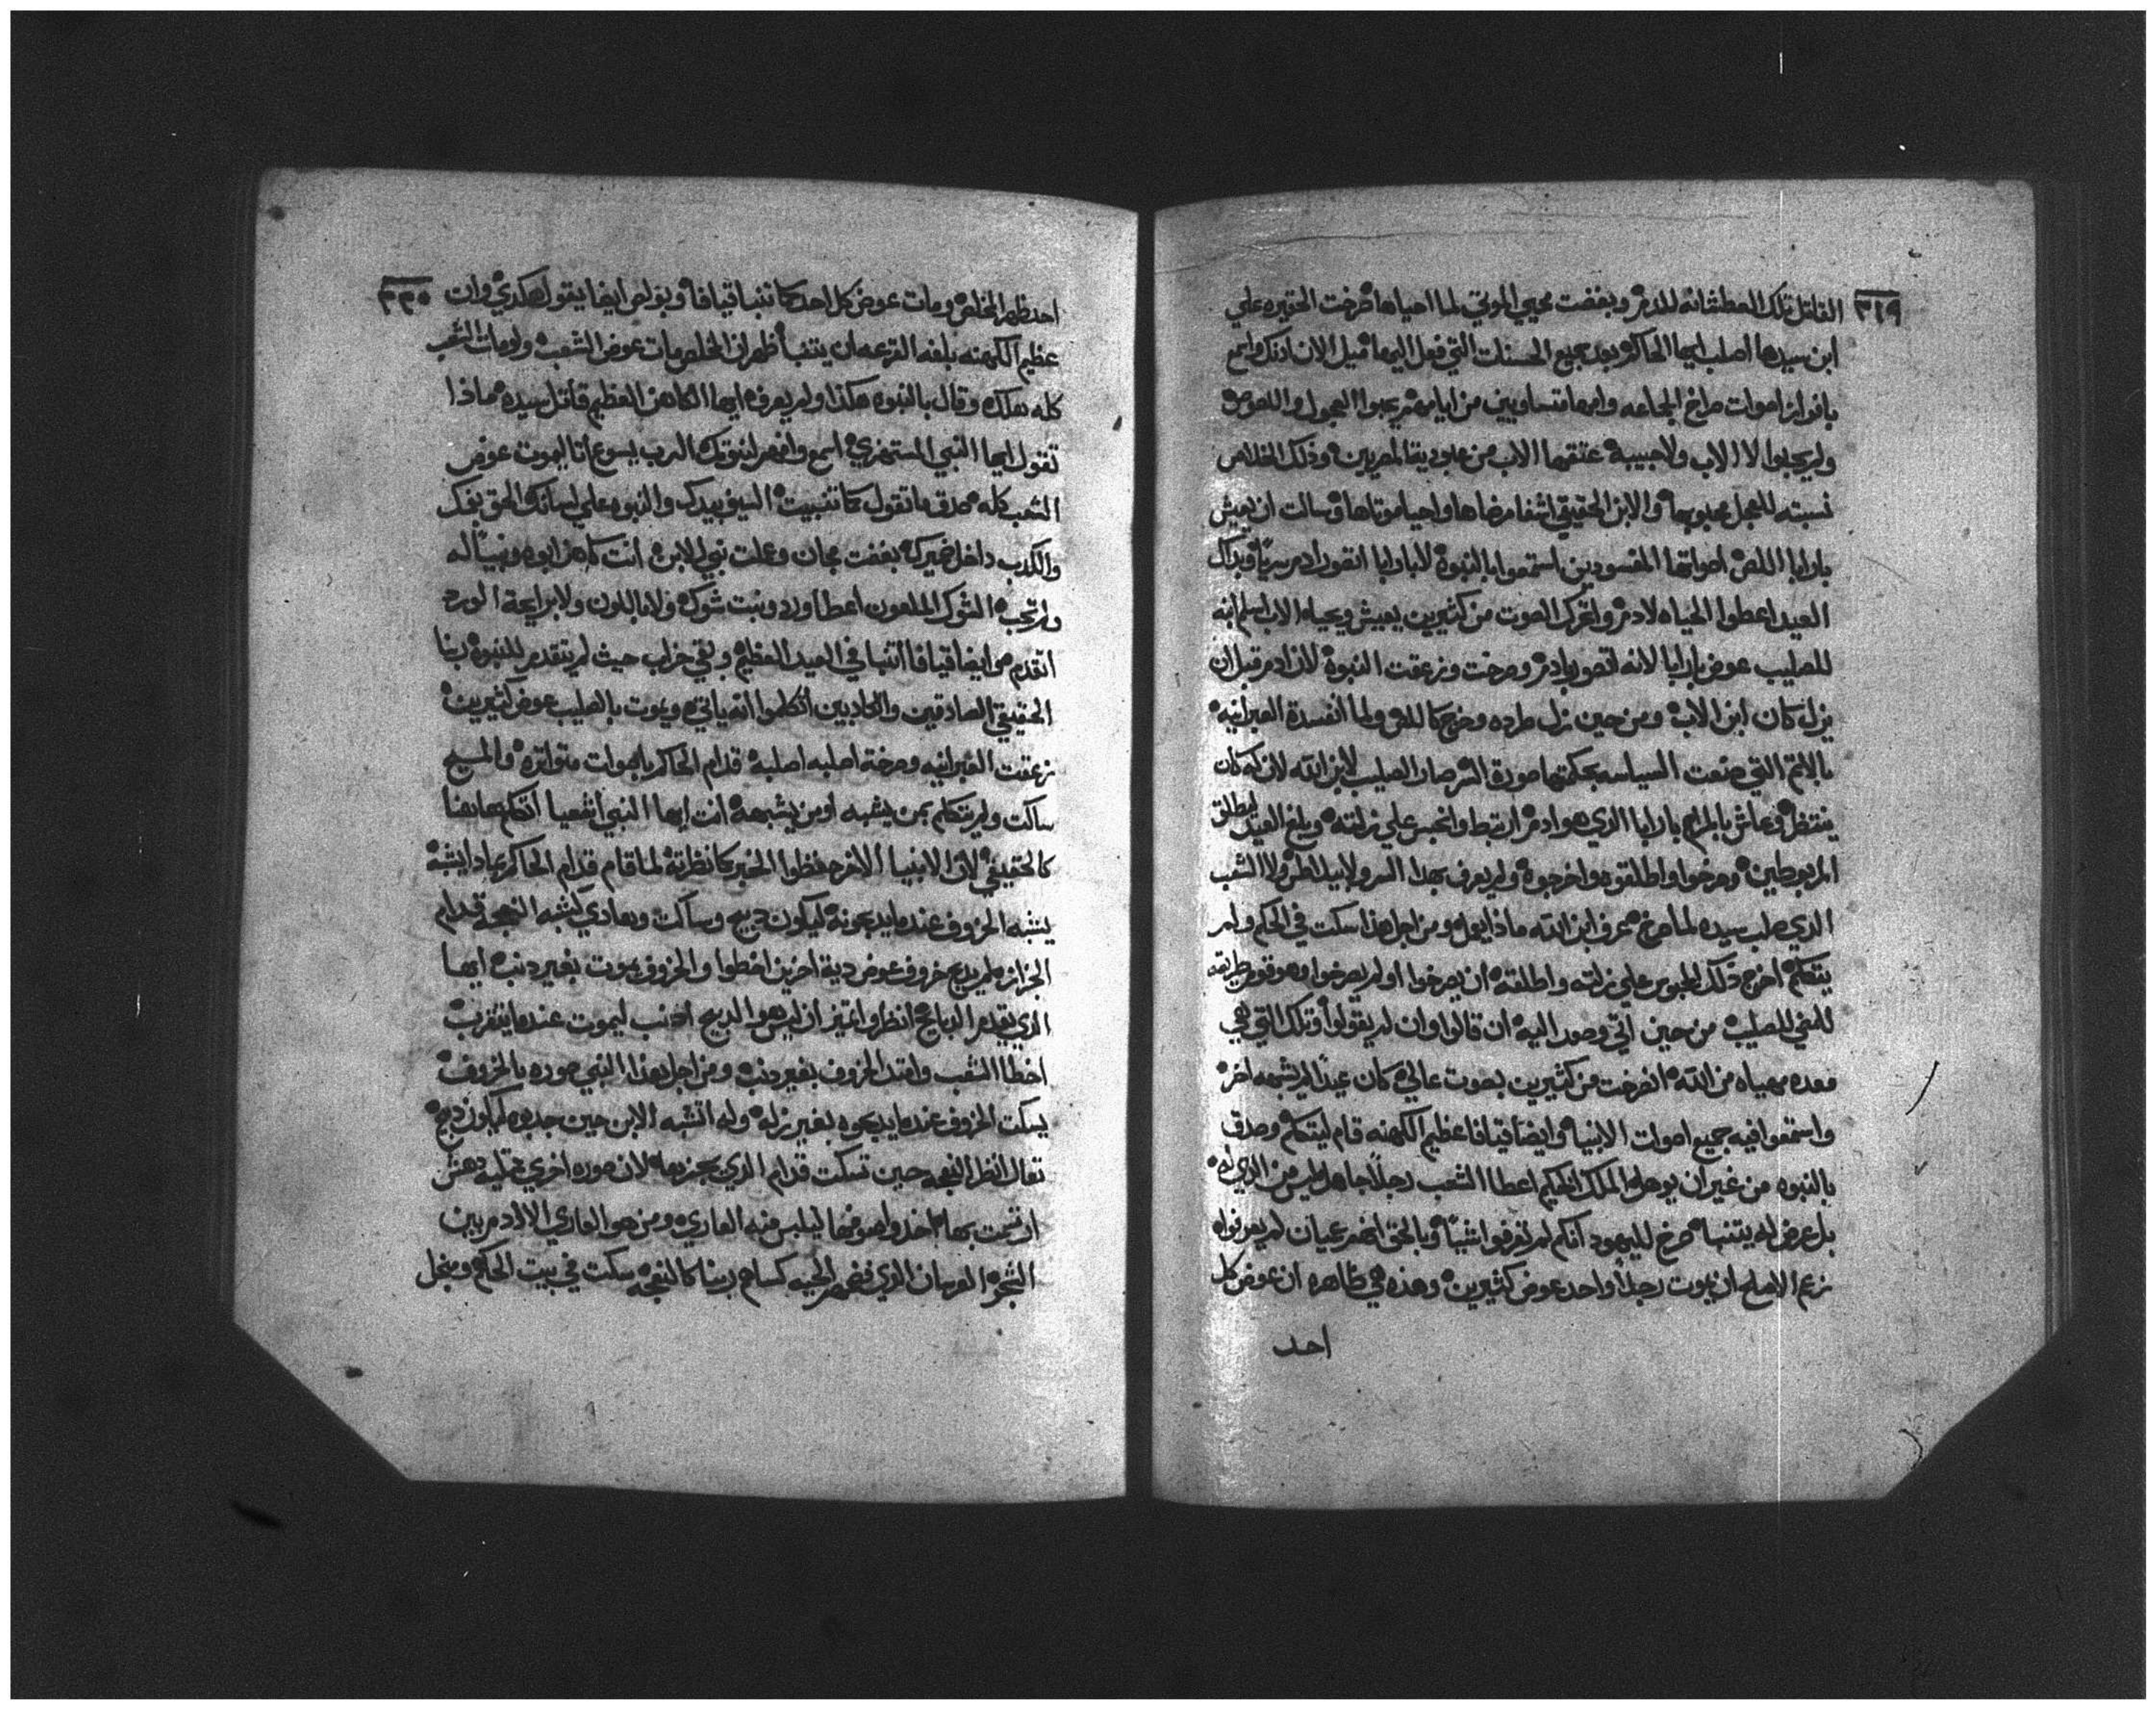 ٣٢٩
القاتل تلك العطشانه للدم وبغضت محيي الموتي لما احياها صرخت الحقيره علي
ابن سيدها اصلب ايها الحاكم بعد جميع الحسنات التي فعل اليها ميل الان ادنك واسمع
اصوات صراخ الجماعه وانها متساويين من ايامهم يحبوا العجول واللصوص
ولم يحبوا لا الاب ولا حبيبه عتقها الاب من عبودية المصريين وذلك الخلاص
نسبته للعجل محبوبها والابن الحقيقي اشفا مرضاها واحيا موتاها وسالت ان يعيش
بارابا اللص اصواتها المفسودين استمعوا بالنبوة لا بارابا اتصور ادم سريًا وبذلك
العيد اعطوا الحياه لادم ولتحرك الصوت من كثيرين يعيش ويحياه الاب اسلم ابنه
للصليب عوض بارابا لانه اتصور بادم وصرخت وزعقت النبوة لان ادم قبل ان
يزل كان ابن الاب ومن حين زل طرده وخرج كاللص ولما انفسدة العبرانيه
بالاتم التي صنعت السياسه بحكمتها صورة الشر صار الصليب لابن الله لانه كان
ينتظره عاش بالمراحم بارابا الذي هو ادم ارتبط وانحبس علي زلته وبلغ العيد ليطلق
المربوطين وصرخوا واطلقوه واخرجوه ولم يعرف بهذا السر ولا بيلاطس ولا الشعب
الذي صلب سيده لما صرخ عرف ابن الله ماذا يعمل ومن اجل هذا سكت في الحكم ولم
يتكلم اخرج ذلك المحبوس علي زلته واطلقه ان يصرخوا او لم يصرخوا وهو قوم طريقه
للمضي للصليب من حين اتي وصعد اليه ان قالوا وان لم يقولوا وتلك التي هي
معده مهياه من الله انصرخت من كثيرين بصوت عالي كان عيدًا لم يشبهه اخر
واستمعوا فيه جميع اصوات الانبيا وايضا قيافا عظيم الكهنه قام ليتكلم وصدق
بالنبوه من غير ان يوهله الملك الحكيم اعطا الشعب رجلاً جاهل ليس من الذي له
بل عرض له يتنبا صرخ لليهود انكم لم تعرفوا شيًا وبالحق انهم عميان لم يعرفوه
زعم الاصلح ان يموت رجلاً واحد عوض كثيرين وهذه هي ظاهره ان عوض كل
احد
٣٣٠
احد ظهر المخلص ومات عوض كل احد كما تنبا قيافا وبولس ايضا يقول هكدي وان
عظيم الكهنه بلغه القرعه ان يتنبا ظهر ان المخلص مات عوض الشعب ولو مات الشعب
كله هلك وقال بالنبوه هكذا ولم يعرف ايها الكاهن العظيم قاتل سيده ماذا
تقول ايها النبي المستهزي اسمع وافهم لنبوتك الرب يسوع اتا ليموت عوض
الشعب كله صدق ما تقول كما تنبيت السيف بيدك والنبوه علي لسانك الحق بفمك
والكدب داخل ضميرك بغضت مجان وعملت نبي للابن انت كاهن ابوه ونبيًا له
ولم تحبه الشوك الملعون اعطا ورد ونبت شوك ولا باللون ولا برايحة الورد
اتقدم هو ايضا قيافا اتنبا في العيد العظيم وبقي خراب حيث لم يتقدم للنبوه بينا
الحقيقي الصادقين والكادبين اتكلموا انه ياتي ويموت بالصليب عوض كثيرين
زعقت العبرانيه وصرخة اصلبه اصلبه قدام الحاكم باصوات متواتره والمسيح
ساكت ولم يتكلم بمن يشبه او من يشبهه انت ايها النبي اشعيا اتكلم هاهنا
كالحقيقي لان الانبيا الاخر حفظوا الخبر كما نظرته لما قام قدام الحاكم بمادا يشبه
يشبه الخروف عندما يدبحونه ليكون دبيح وساكت وبمادي يشبه النعجه قدام
الجزازه لم يدبح خروف عوض دية اخرين اخطوا والخروف يموت بغير دنب ايها
الذي يقدم الدبايح انظر واتميز ان ليس هو الدبيح ادنب ليموت عندما يتقرب
اخطا الشعب واقتد الخروف بغير دنب ومن اجل هذا النبي صوره بالخروف
يسكت الخروف عندما يدبحوه بغير زله وله اتشبه الابن حين جدبوه ليكون دبيح
تعال انظر النعجه حين تسكت قدام الذي يجزها لان صوره اخري جميله دهش
ان تنعت بها اخدوا صوفها ليلبس منه العاري ومن هو العاري الا ادم بين
الشجر العريان الذي فضحهم الحيه كساهم ربنا كالنعجه سكت في بيت الحكم وبجل